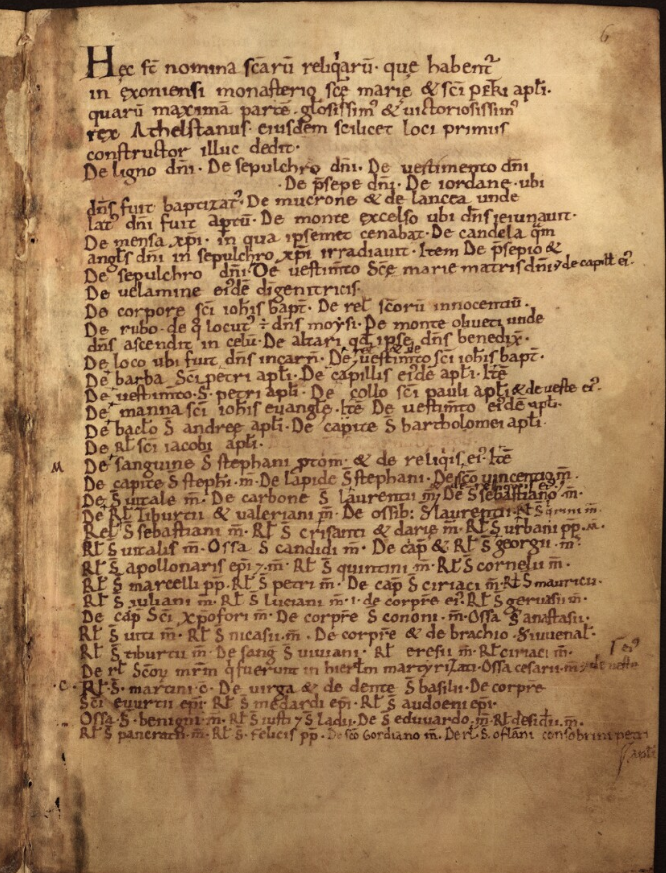 6
Hęc st̄ nomina scārū reliq̄arū · quę habent᷑
in ęxoniensi monasterio scę̄ marię & sc̄i petri apl̄i ·
quarū maximā partē · gl̄osissim᷒ & uictoriosissim᷒
rex Athelstanus · eiusdem scilicet loci primus
constructor illuc dedit ·
De ligno dn̄i · De sepulchro dn̄i · De uestimento dn̄i
· De p̄sepe dn̄i · De iordane · ubi
dn̄s fuit baptizat᷒ · De mucrone & de lancea unde
lat᷒ dn̄i fuit aptū · De monte excelso ubi dn̄s ieiunauit ·
De mensa xp̄i · in qua ipsemet cenabat · De candela q̄m
angl̄s dn̄i in sepulchro xp̄i irradiauit · Item De p̄sepio &
De sepulchro dn̄i · De uestim̄to Scę̄ marie matris dn̄i ⁊ de capill̄ ei᷒ ·
De uelamine eidē digenitricis
De corpore sc̄i ioh̄is bapt̄ · De rel̄ sc̄orū innocentiū ·
De rubo · de q̊ locut᷒ ÷ dn̄s moysi · De monte oliueti unde
dn̄s ascendit in celū · De altari qd̄ ipse dn̄s benedix̄ ·
De loco ubi fuit dn̄s incarn̄ · De uestim̄to sc̄i ioh̄is bapt̄ ·
De barba Sc̄i petri apl̄i · De capillis ei᷒dē apl̄i · Itē
De uestim̄to · S̄ petri apl̄i · De collo sc̄i pauli apl̄i & de ueste ei᷒ ·
De manna sc̄i ioh̄is euangl̄ę · Itē De uestim̄to ei᷒dē apl̄i ·
De bacl̄o S̄ andreę apl̄i · De capite S̄ bartholomei apl̄i ·
De rl̄ sc̄i iacobi apl̄i ·
M De sanguine S̄ stephani ptom̄ · & de reliq̄is ei᷒ · Itē
De capite S̄ steph̄i · m̄ · De lapide S̄ stephani · De sc̄o uincentio m̄ ·
De S̄ uitale m̄ · De carbone S̄ laurentii m̄ · De S̄ sebastiano · m̄ ·
De Rl̄ tiburtii & ualeriani m̄ · De ossib: S̄ laurentii · Rl̄ S̄ quirini m̄ ·
Rel̄ S̄ sebastiani m̄ · Rl̄ S̄ crisanti & darię m̄ · Rl̄ S̄ urbani pp̄ · m̄ ·
Rl̄ S̄ uitalis m̄ · Ossa S̄ candidi m̄ · De cap̄ & Rl̄ S̄ georgii · m̄ ·
Rl̄ S̄ apollonaris epi᷒ ⁊ m̄ · Rl̄ S̄ quintini m̄ · Rl̄ S̄ cornelii m̄ ·
Rl̄ S̄ marcelli pp̄ · Rl̄ S̄ petri m̄ · De cap̄ S̄ ciriaci m̄ · Rl̄ S̄ mauricii ·
Rl̄ S̄ iuliani m̄ · Rl̄ S̄ luciani m̄ · i · de corpre ei᷒ · Rl̄ S̄ geruasii m̄ ·
De cap̄ Sc̄i xp̄ofori m̄ · De corpre S̄ cononi · m̄ · Ossa S̄ anastasii ·
Rl̄ S̄ uiti m̄ · Rl̄ S̄ nicasii · m̄ · De corpre & de brachio · S̄ iuuenal̄ ·
Rl̄ S̄ tiburtii m̄ · De sang̊ S̄ uiuiani · Rl̄ eresii m̄ · Rl̄ ciriaci m̄ ·
De rl̄ Sc̄oꝝ mr̄m q̄ fuerunt in hierl̄m martyrizati · Ossa cesarii · m̄ ⁊ de ueste ei᷒
· C · Rl̄ S̄ · martini c̄ · De uirga & de dente S̄ basilii · De corpre
Sc̄i euurtii epi᷒ · Rl̄ S̄ medardi epi᷒ · Rl̄ S̄ audoeni epi᷒ ·
Ossa S̄ · benigni m̄ · Rl̄ S̄ iusti ⁊ S̄ ladii · De S̄ eduuardo m̄ · Rl̄ desid̄ii m̄ ·
Rl̄ S̄ pancratii · m̄ · Rl̄ S̄ · felicis pp̄ · De sc̄o Gordiano m̄ · De rl̄ S̄ oflani consobrini petri
apl̄i